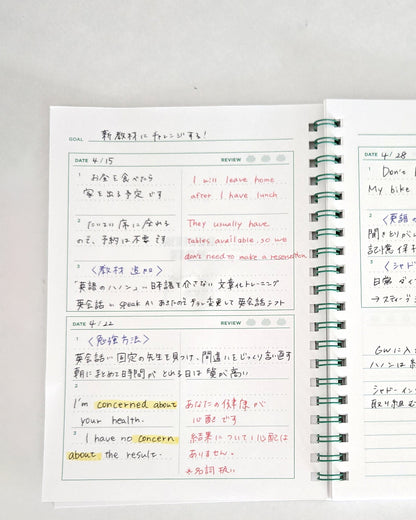 GOAL 新教材にチャレンジする!
DATE 4/15 REVIEW
1 お昼を食べたら
家を出る予定です
I will leave home
after I have lunch.
2 たいてい席に座れる
ので、予約は不要です
They usually have
tables available, so we
don't need to make a reservation.
3 〈教材追加〉
「英語のハノン」… 日本語を介さない文変化トレーニング
英会話… speak AI
DATE 4/22 REVIEW
1 〈勉強方法〉
英会話… 固定の先生を見つけ、間違いをじっくり言い直す
朝にまとめて時間がとれる日は質が高い
2
I'm concerned about
your health.
あなたの健康が
心配です
3 I have no concern
about the result.
結果について心配は
ありません。
*名詞扱い
DATE 4/28
1 Don't
My bike
2
3
GWに入
ハノンは
シャドーイン
取り組む